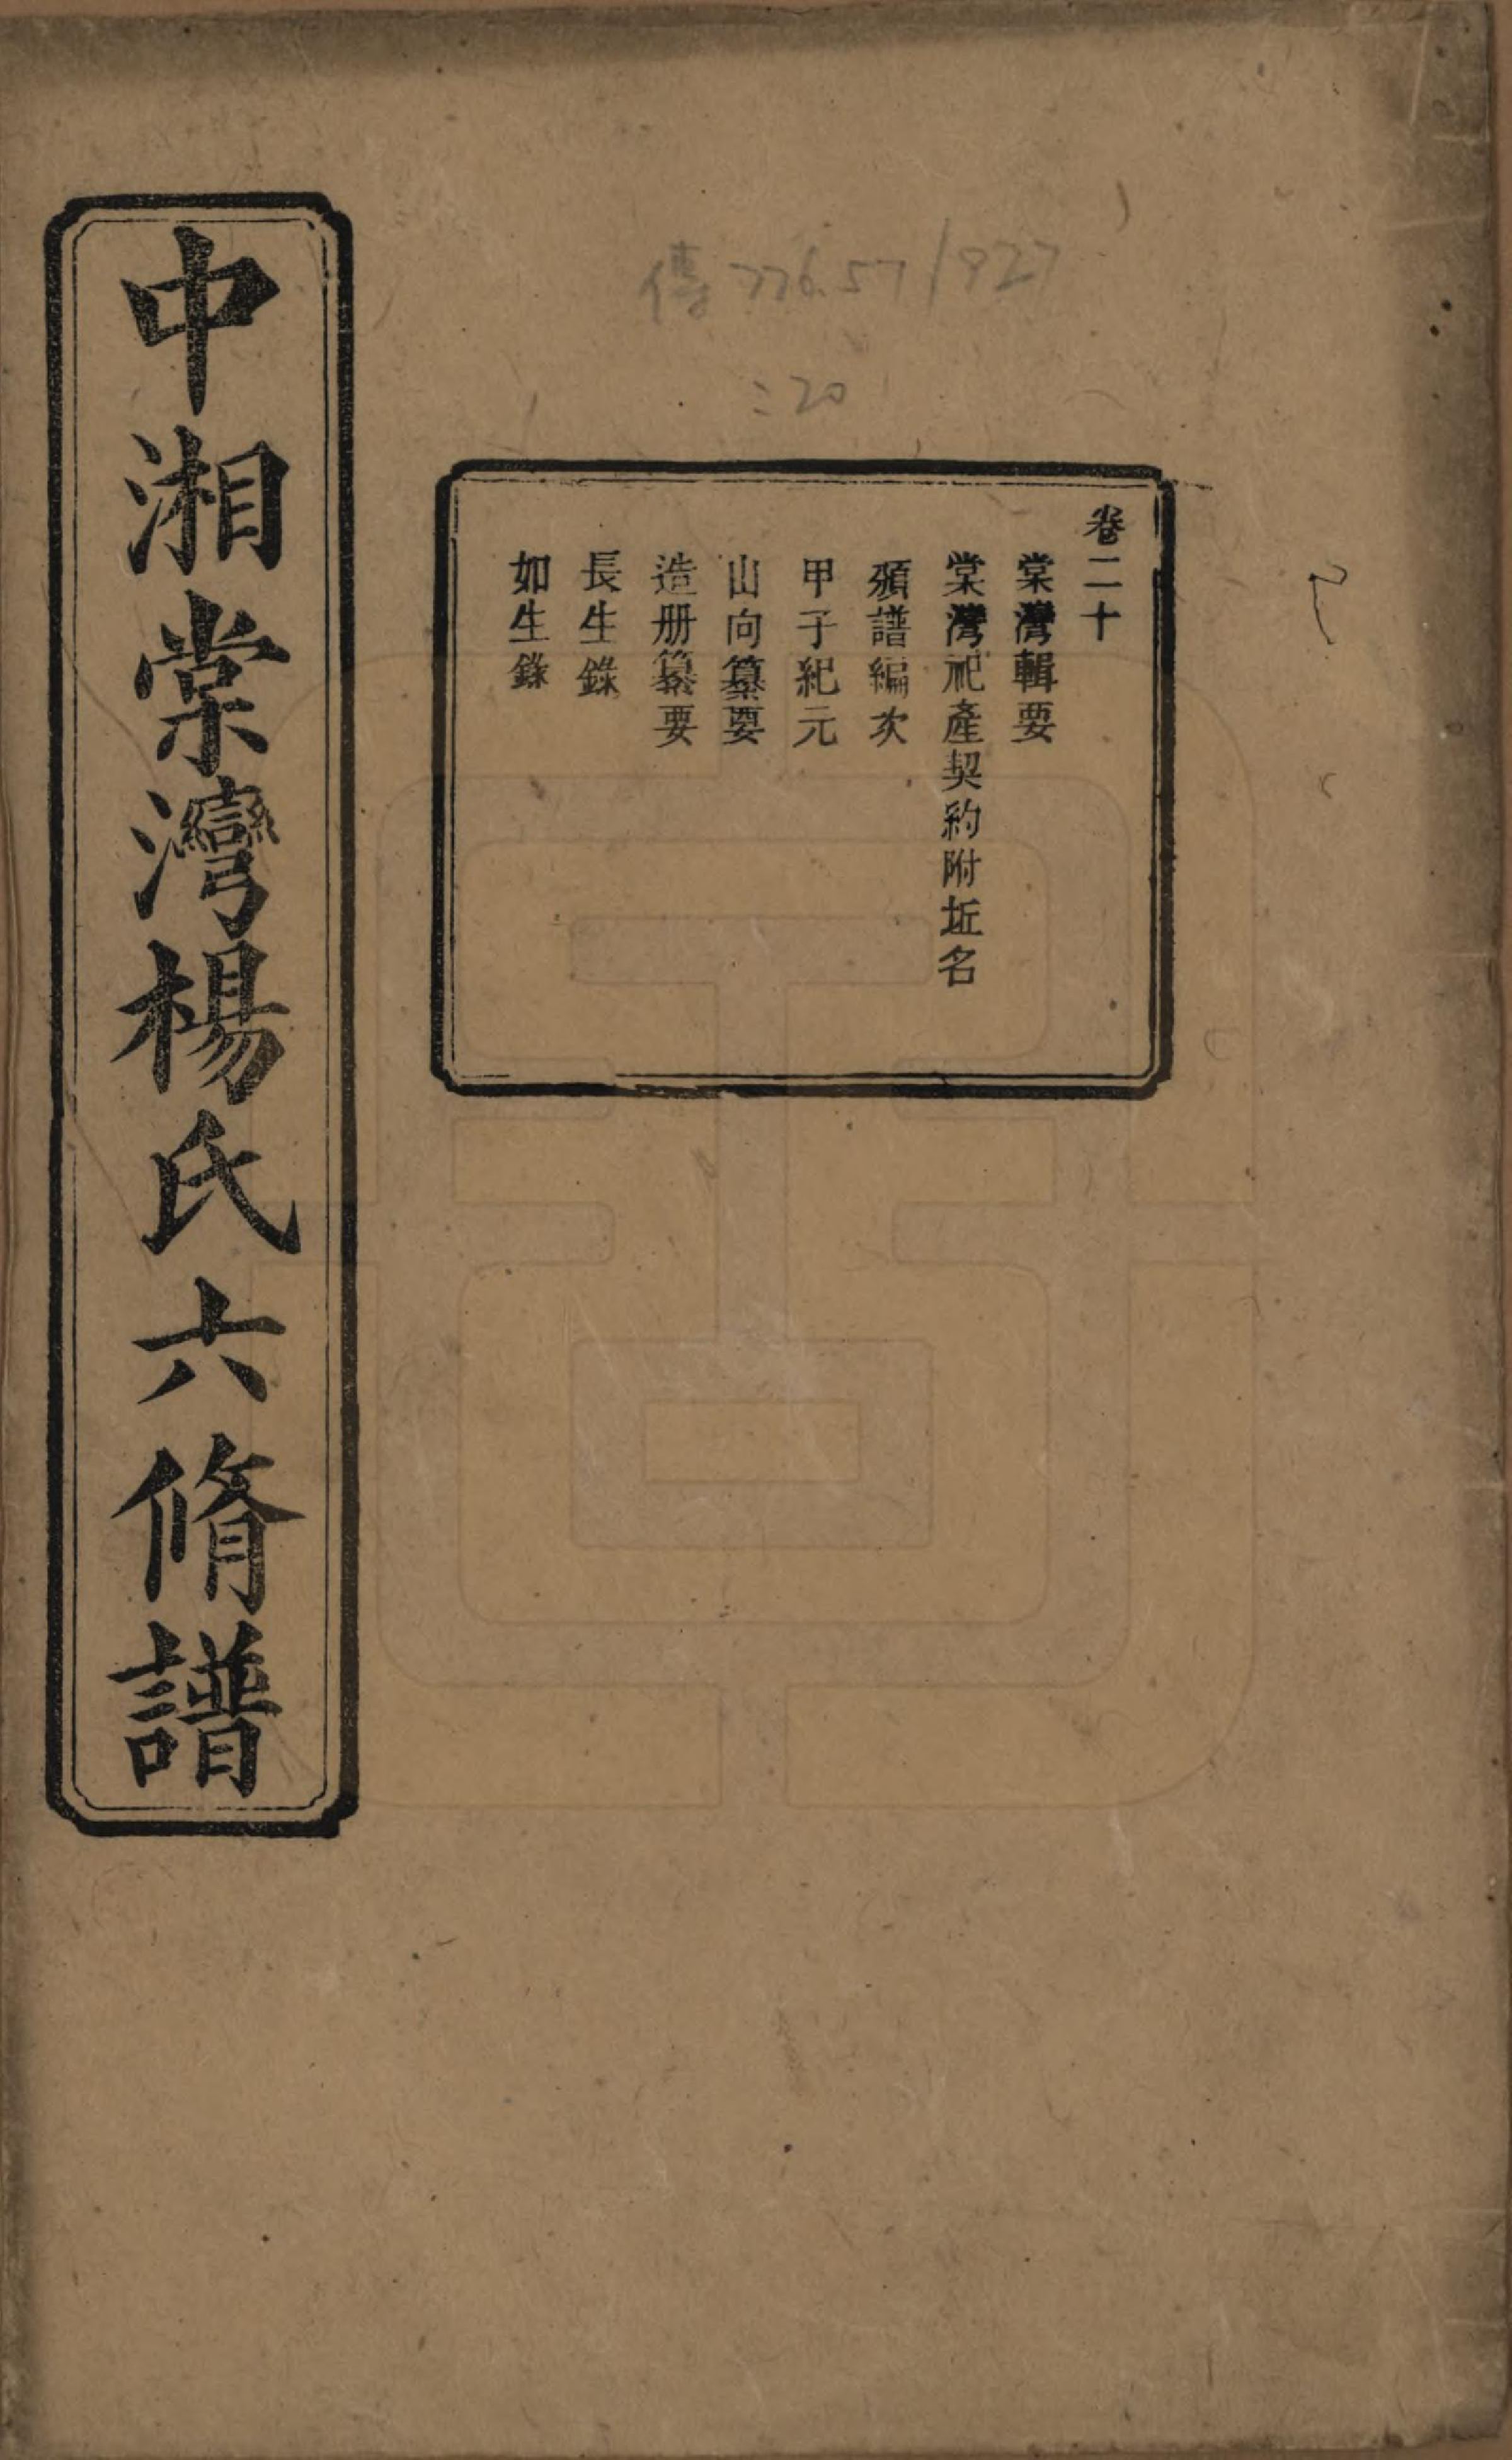 傳776.57/927
:20
卷二十
棠灣輯要
棠灣祀產契約附坵名
頒譜編次
甲子紀元
山向纂要
造册纂要
長生錄
如生錄
中湘棠灣楊氏六脩譜